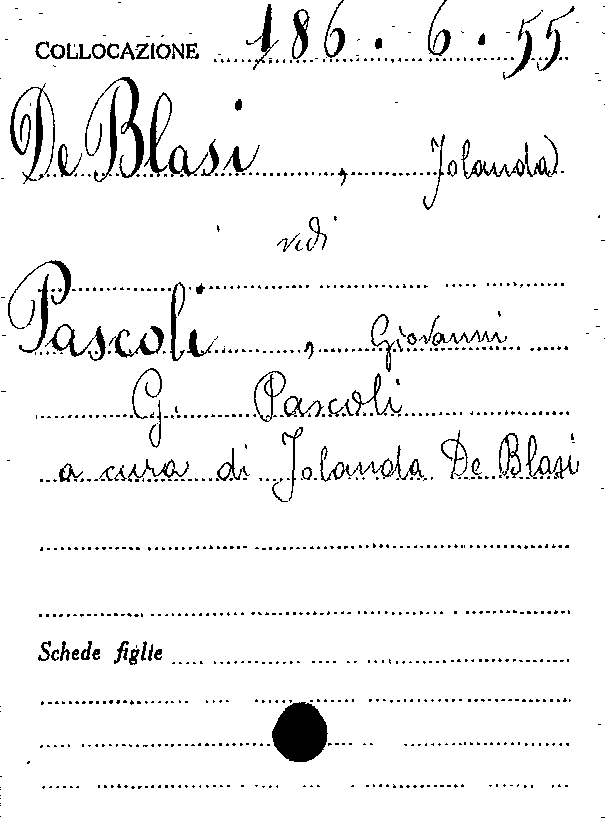 COLLOCAZIONE 186.6.55
De Blasi, Jolanda
vedi
Pascoli, Giovanni
G. Pascoli
a cura di Jolanda De Blasi
Schede figlie